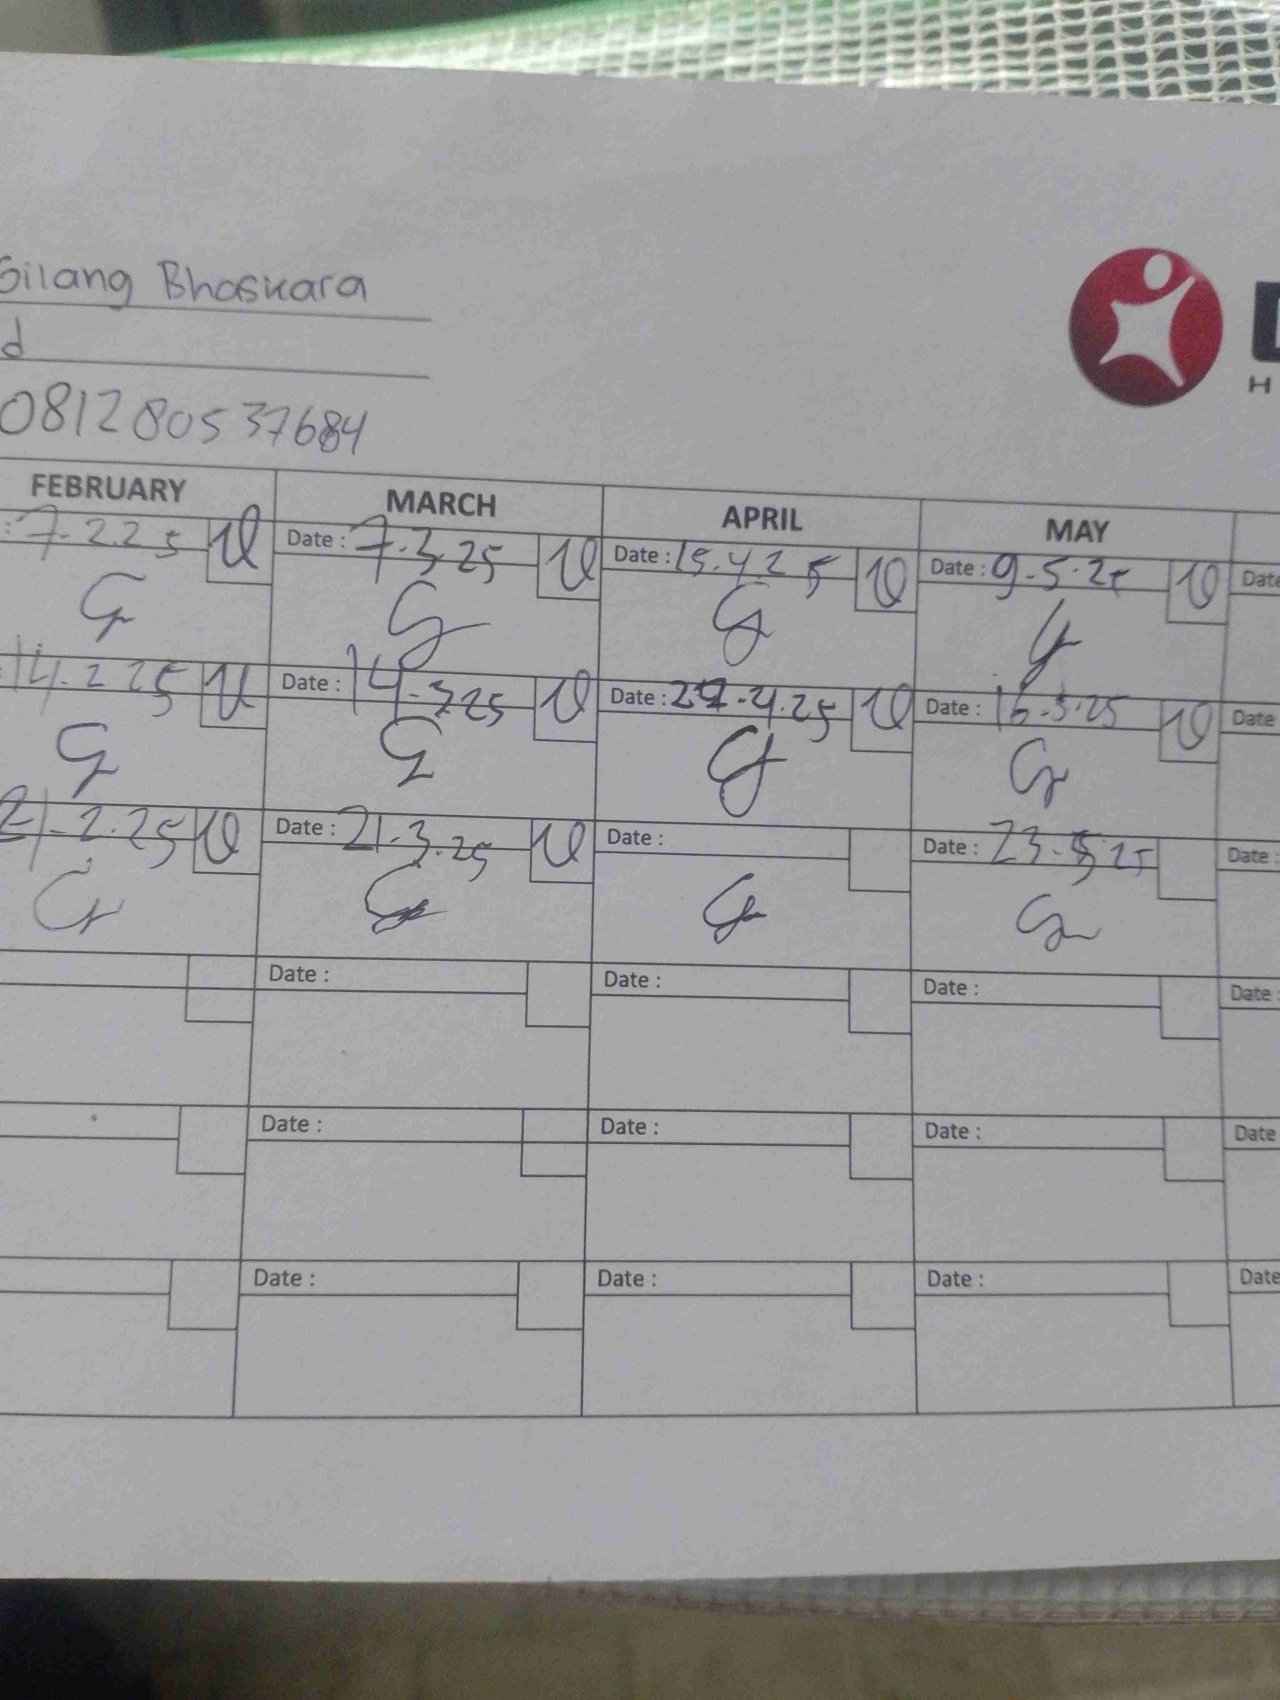 Gilang Bhaskara
d
081280537684
H
FEBRUARY MARCH APRIL MAY
: 7.2.25 Date : 7.3.25 Date : 15.4.25 Date : 9.5.25 Date
14.2.25 Date : 14.3.25 Date : .4.25 Date : 16.5.25 Date
21.2.25 Date : 21.3.25 Date : Date : 23.5.25 Date :
Date : Date : Date : Date :
Date : Date : Date : Date
Date : Date : Date : Date